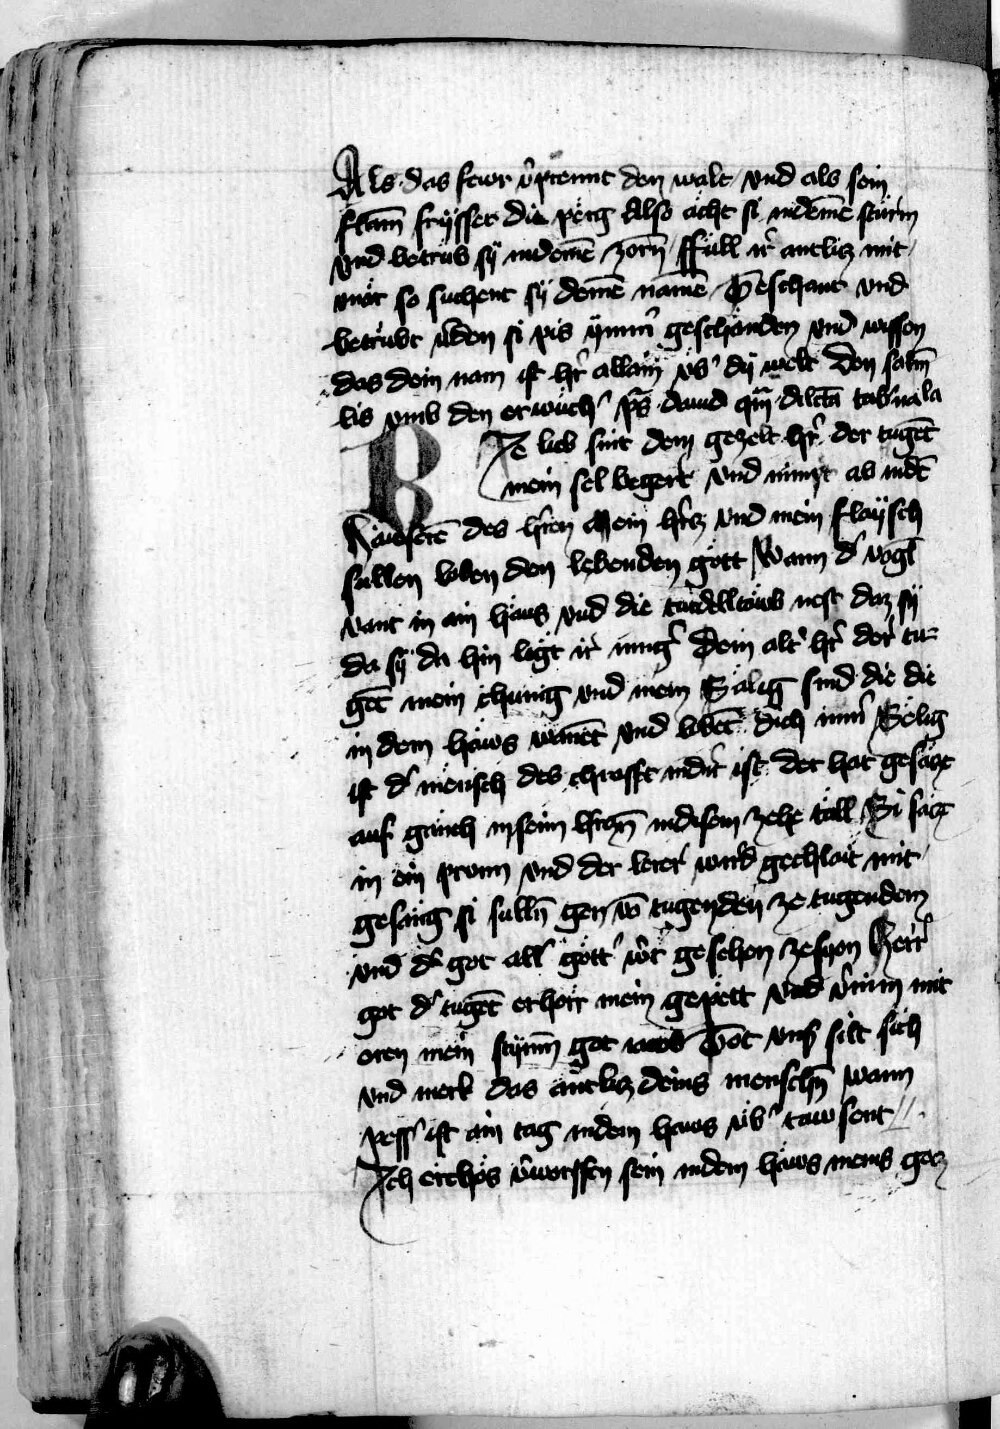 Als das fewr v̾prennt den walt vnd als sein
flam̄ fruͤsset die perg Also aͤcht si indeine̅ sturm
vnd betrub sÿ indeine̅ zorn̄ ffull ir antlicz mit
vnͤr so suchent sÿ deine̅ name̅ Geschant vnd
betrubt w̾den si pis ÿmm̾ geschanden vnd wissen
das dein nam ist hr̾ allain vb̾ dÿ welt Den salm̅
lis vmb den erwirdi ps̅ dauid qm̅ dilcta̅ tab̾nacla
Ie lieb sint dein gezelt hr̾ der tuget̅
mein sel begert vnd nimpt ab ind̾
Haws des hren Mein hercz vnd mein flaÿsch
sullen loben den lebenden gott Wann d̾ vogl
vant im ain haws vnd die turdelltawb nest daz sÿ
da sÿ da hin legt ir iung̾ Dein alt̾ hr̾ der tu=
get̅ mein chunig vnd mein Sälig sind die die
in dem haws wanet̅ vnd lobet̅ dich imm̾ Sälig
ist d̾ mensch des chrafft in dir ist der hat gesaczt
auf ganch in seim hercz̅n in disem zeher tall Si saczt
in ein prunn vnd der lerer wird gechlait mit
gesang si sulln̅ gen vo̅ tugenden ze tugenden
vnd d̾ got all̾ gott̾ w̾t gesehen ze syon Herr
got d̾ tuget̅ erhoͤr mein gepett vnd v̾nim mit
oren mein stÿmm̅ got iacob Got vns̾ silt sich
vnd merk das antlicz deins menschn̅ wann
pess̾ ist ain tag in dem haws vb̾ tawsent
Ich erchos v̾worffen sein in dem haws meins gocz